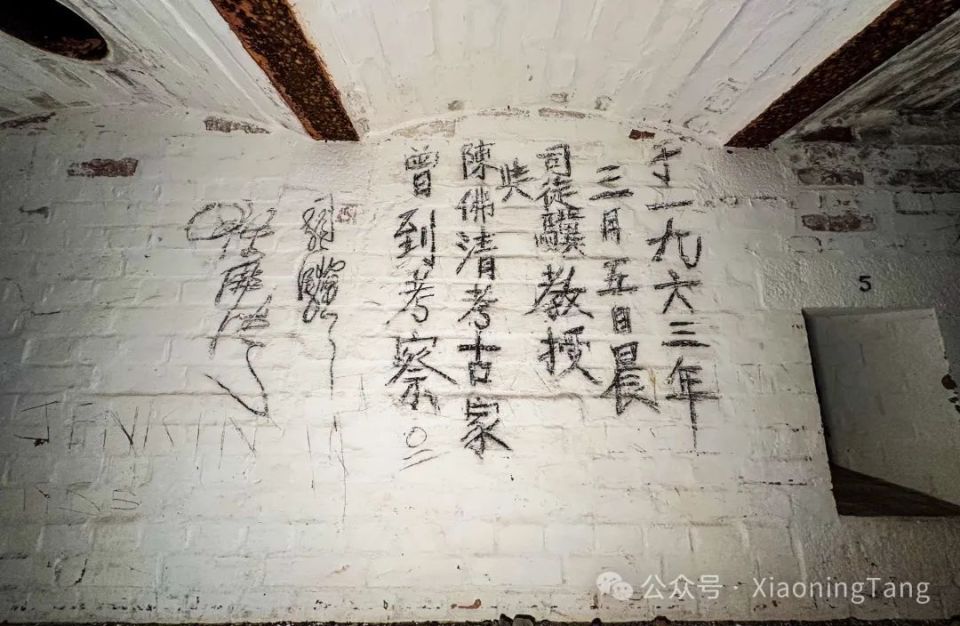 于一九六三年
三月五日晨
司徒教授
陳佛清考古家
曾到考察。
JENKIN
5
公众号 · XiaoningTang